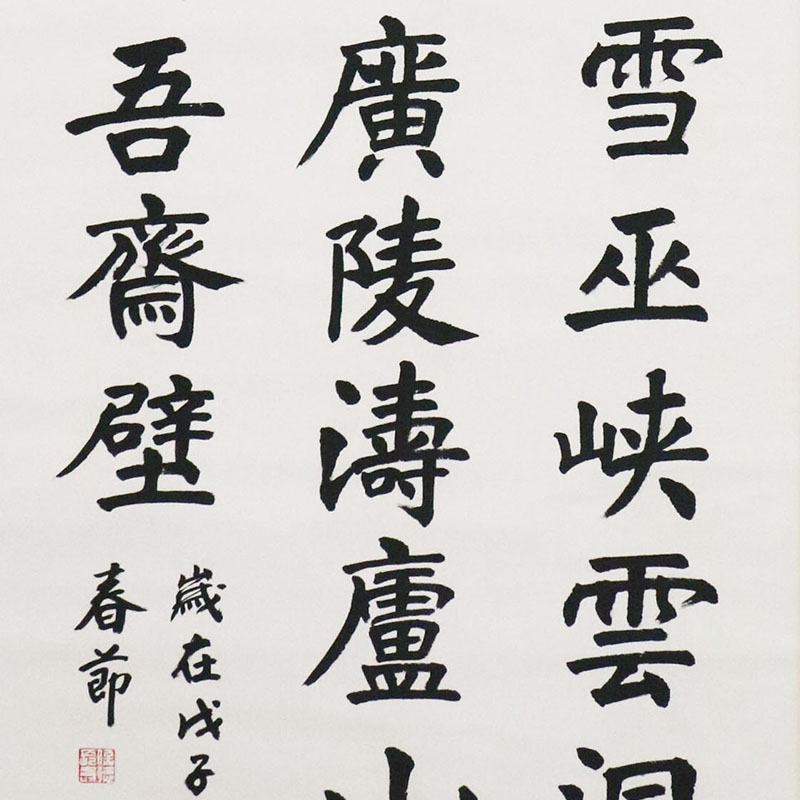 雪巫峽雲洞
廣陵濤廬山
吾齋壁
歲在戊子
春節